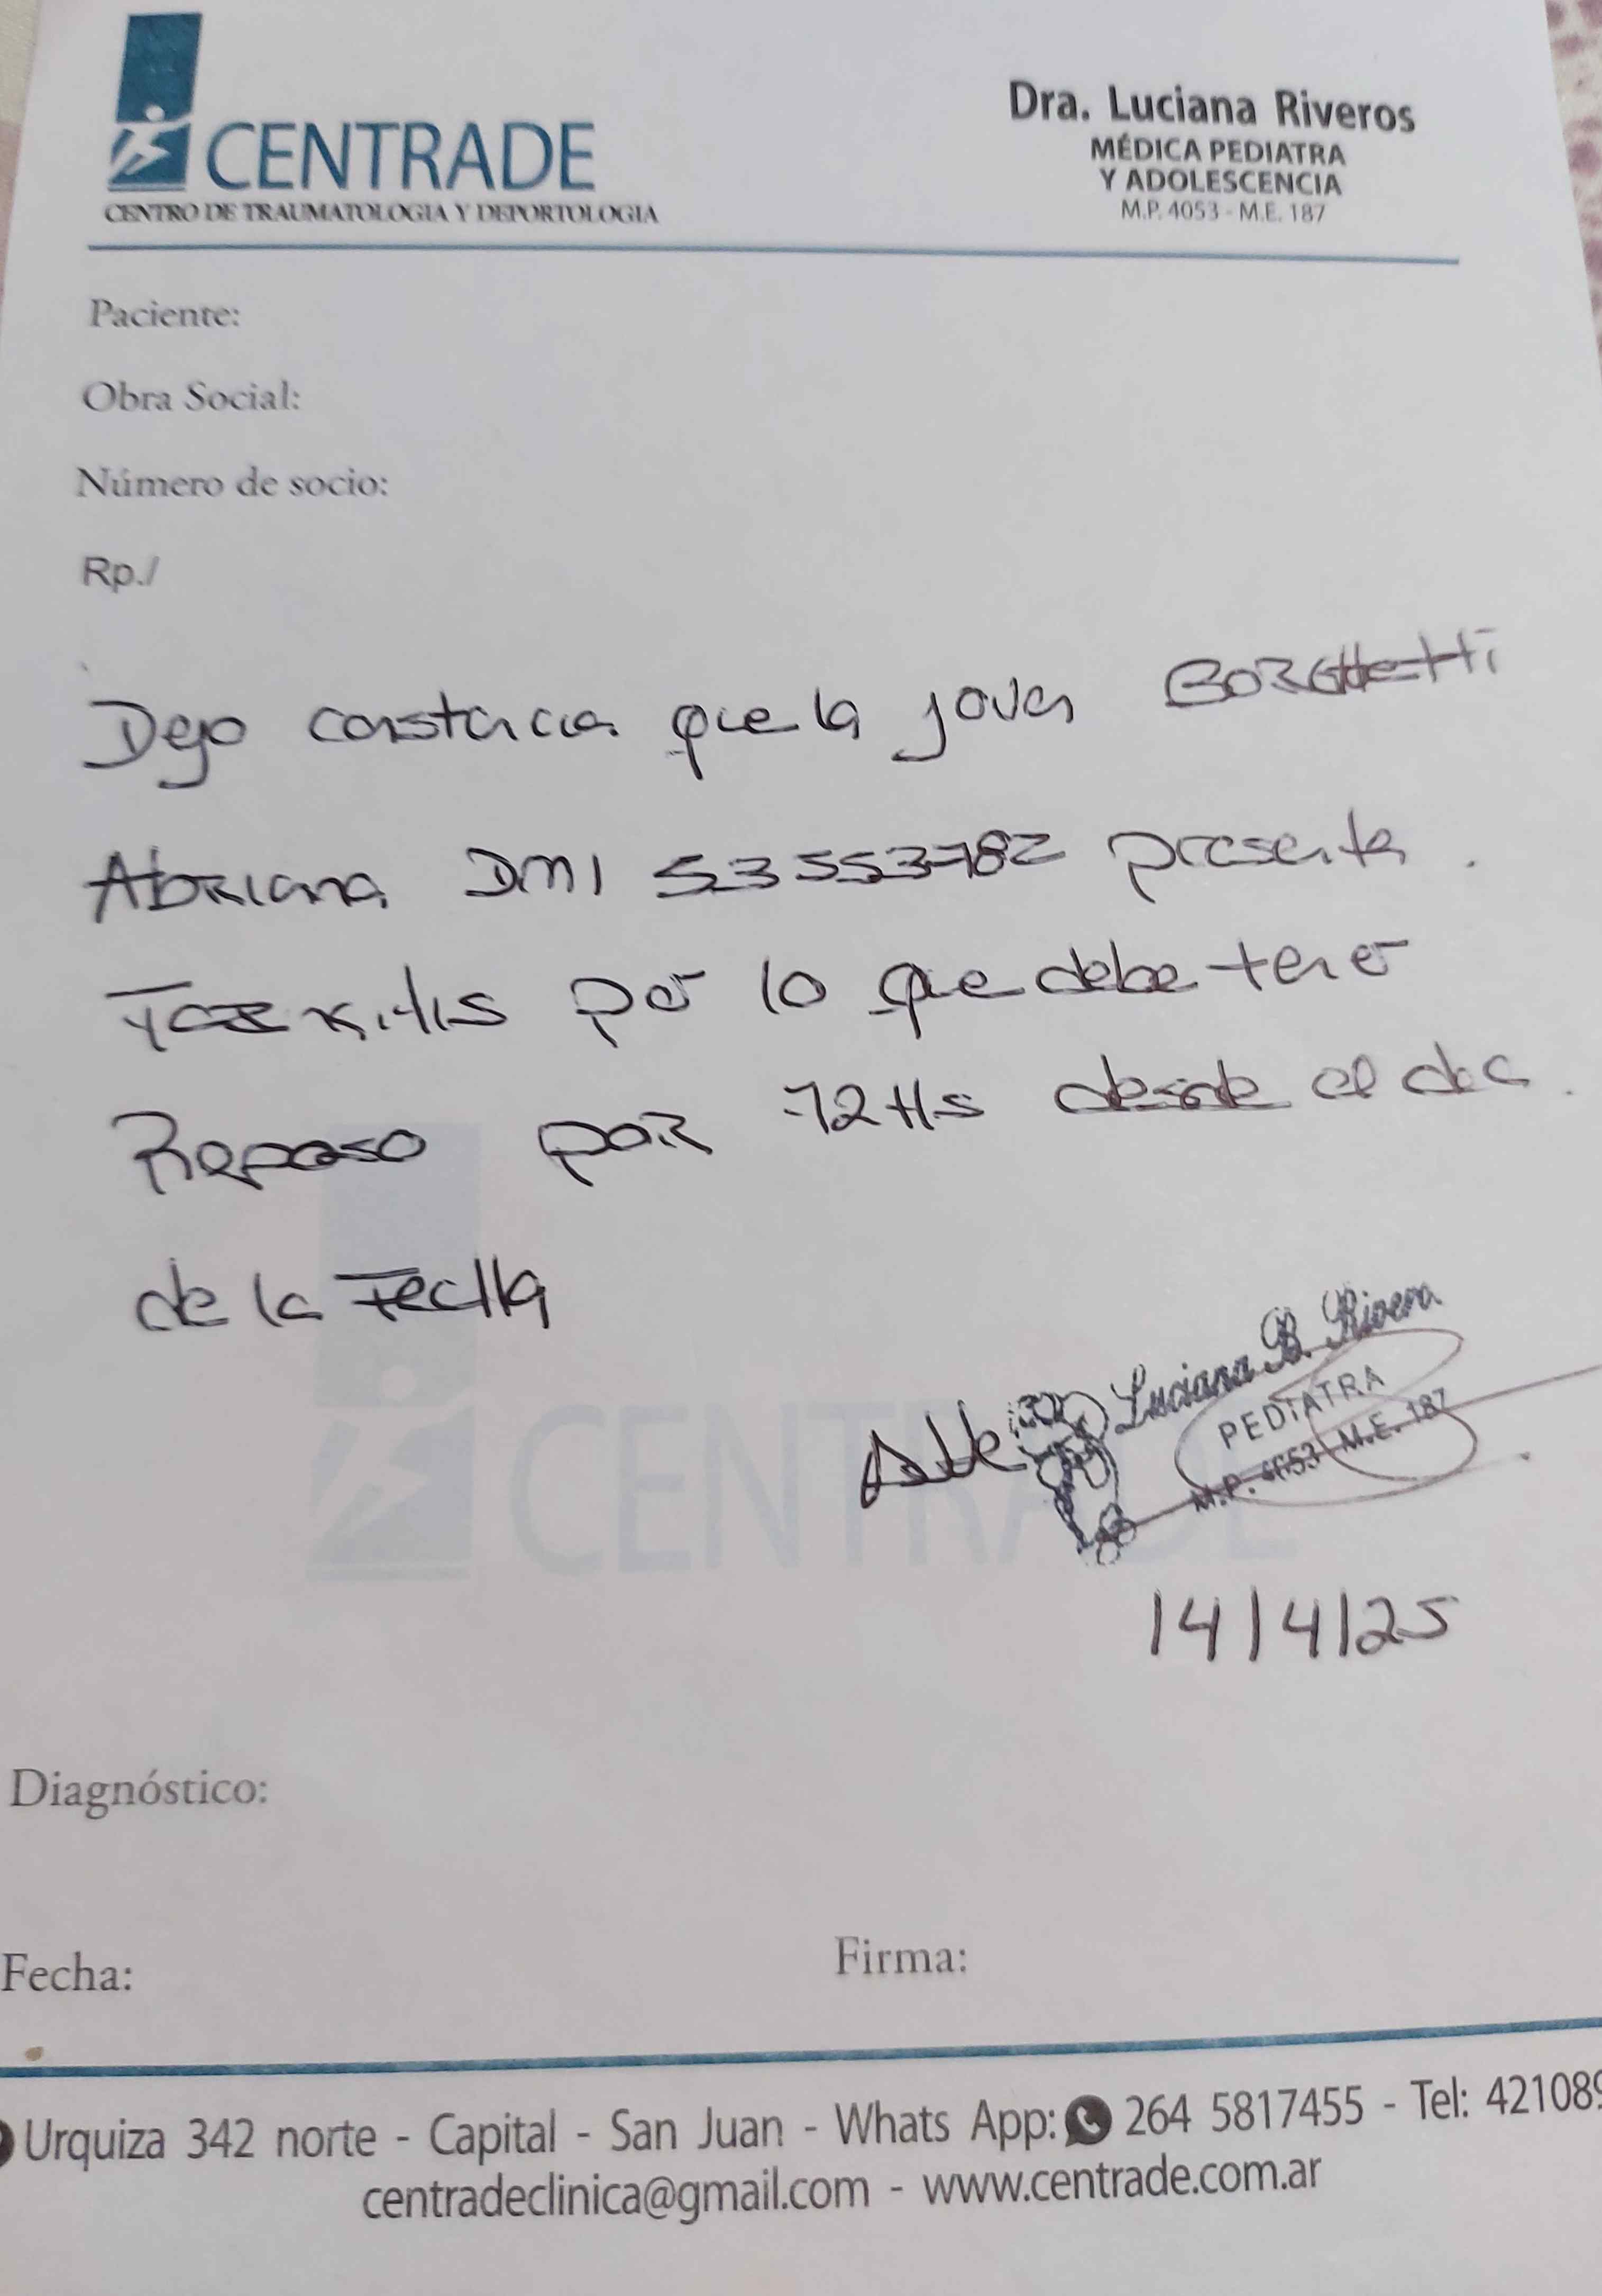 CENTRADE
CENTRO DE TRAUMATOLOGIA Y DEPORTOLOGIA
Dra. Luciana Riveros
MÉDICA PEDIATRA
Y ADOLESCENCIA
M.P. 4053 - M.E. 187
Paciente:
Obra Social:
Número de socio:
Rp./
Dejo constancia que la joven BORGHETTi
Adriana DNI 53553782 presenta
por lo que debe tener
Reposo por 72Hs desde el dia
de la Fecha
Luciana B. Rivera
PEDIATRA
M.P. 4053 M.E. 187
14/4/25
CENTRADE
Diagnóstico:
Fecha:
Firma:
Urquiza 342 norte - Capital - San Juan - Whats App: 264 5817455 - Tel: 421089
centradeclinica@gmail.com - www.centrade.com.ar